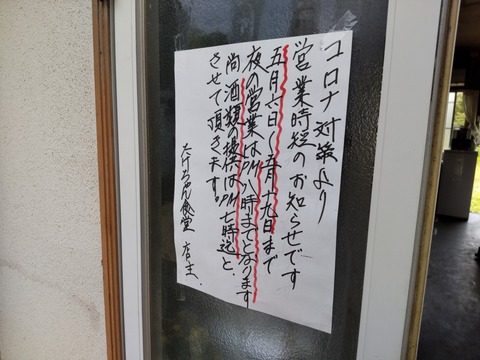 コロナ対策より
営業時短のお知らせです
五月六日〜五月十九日まで
夜の営業はPM八時までとなります
尚酒類の提供はPM七時迄と、
させて頂きます。
たけちゃん食堂 店主.